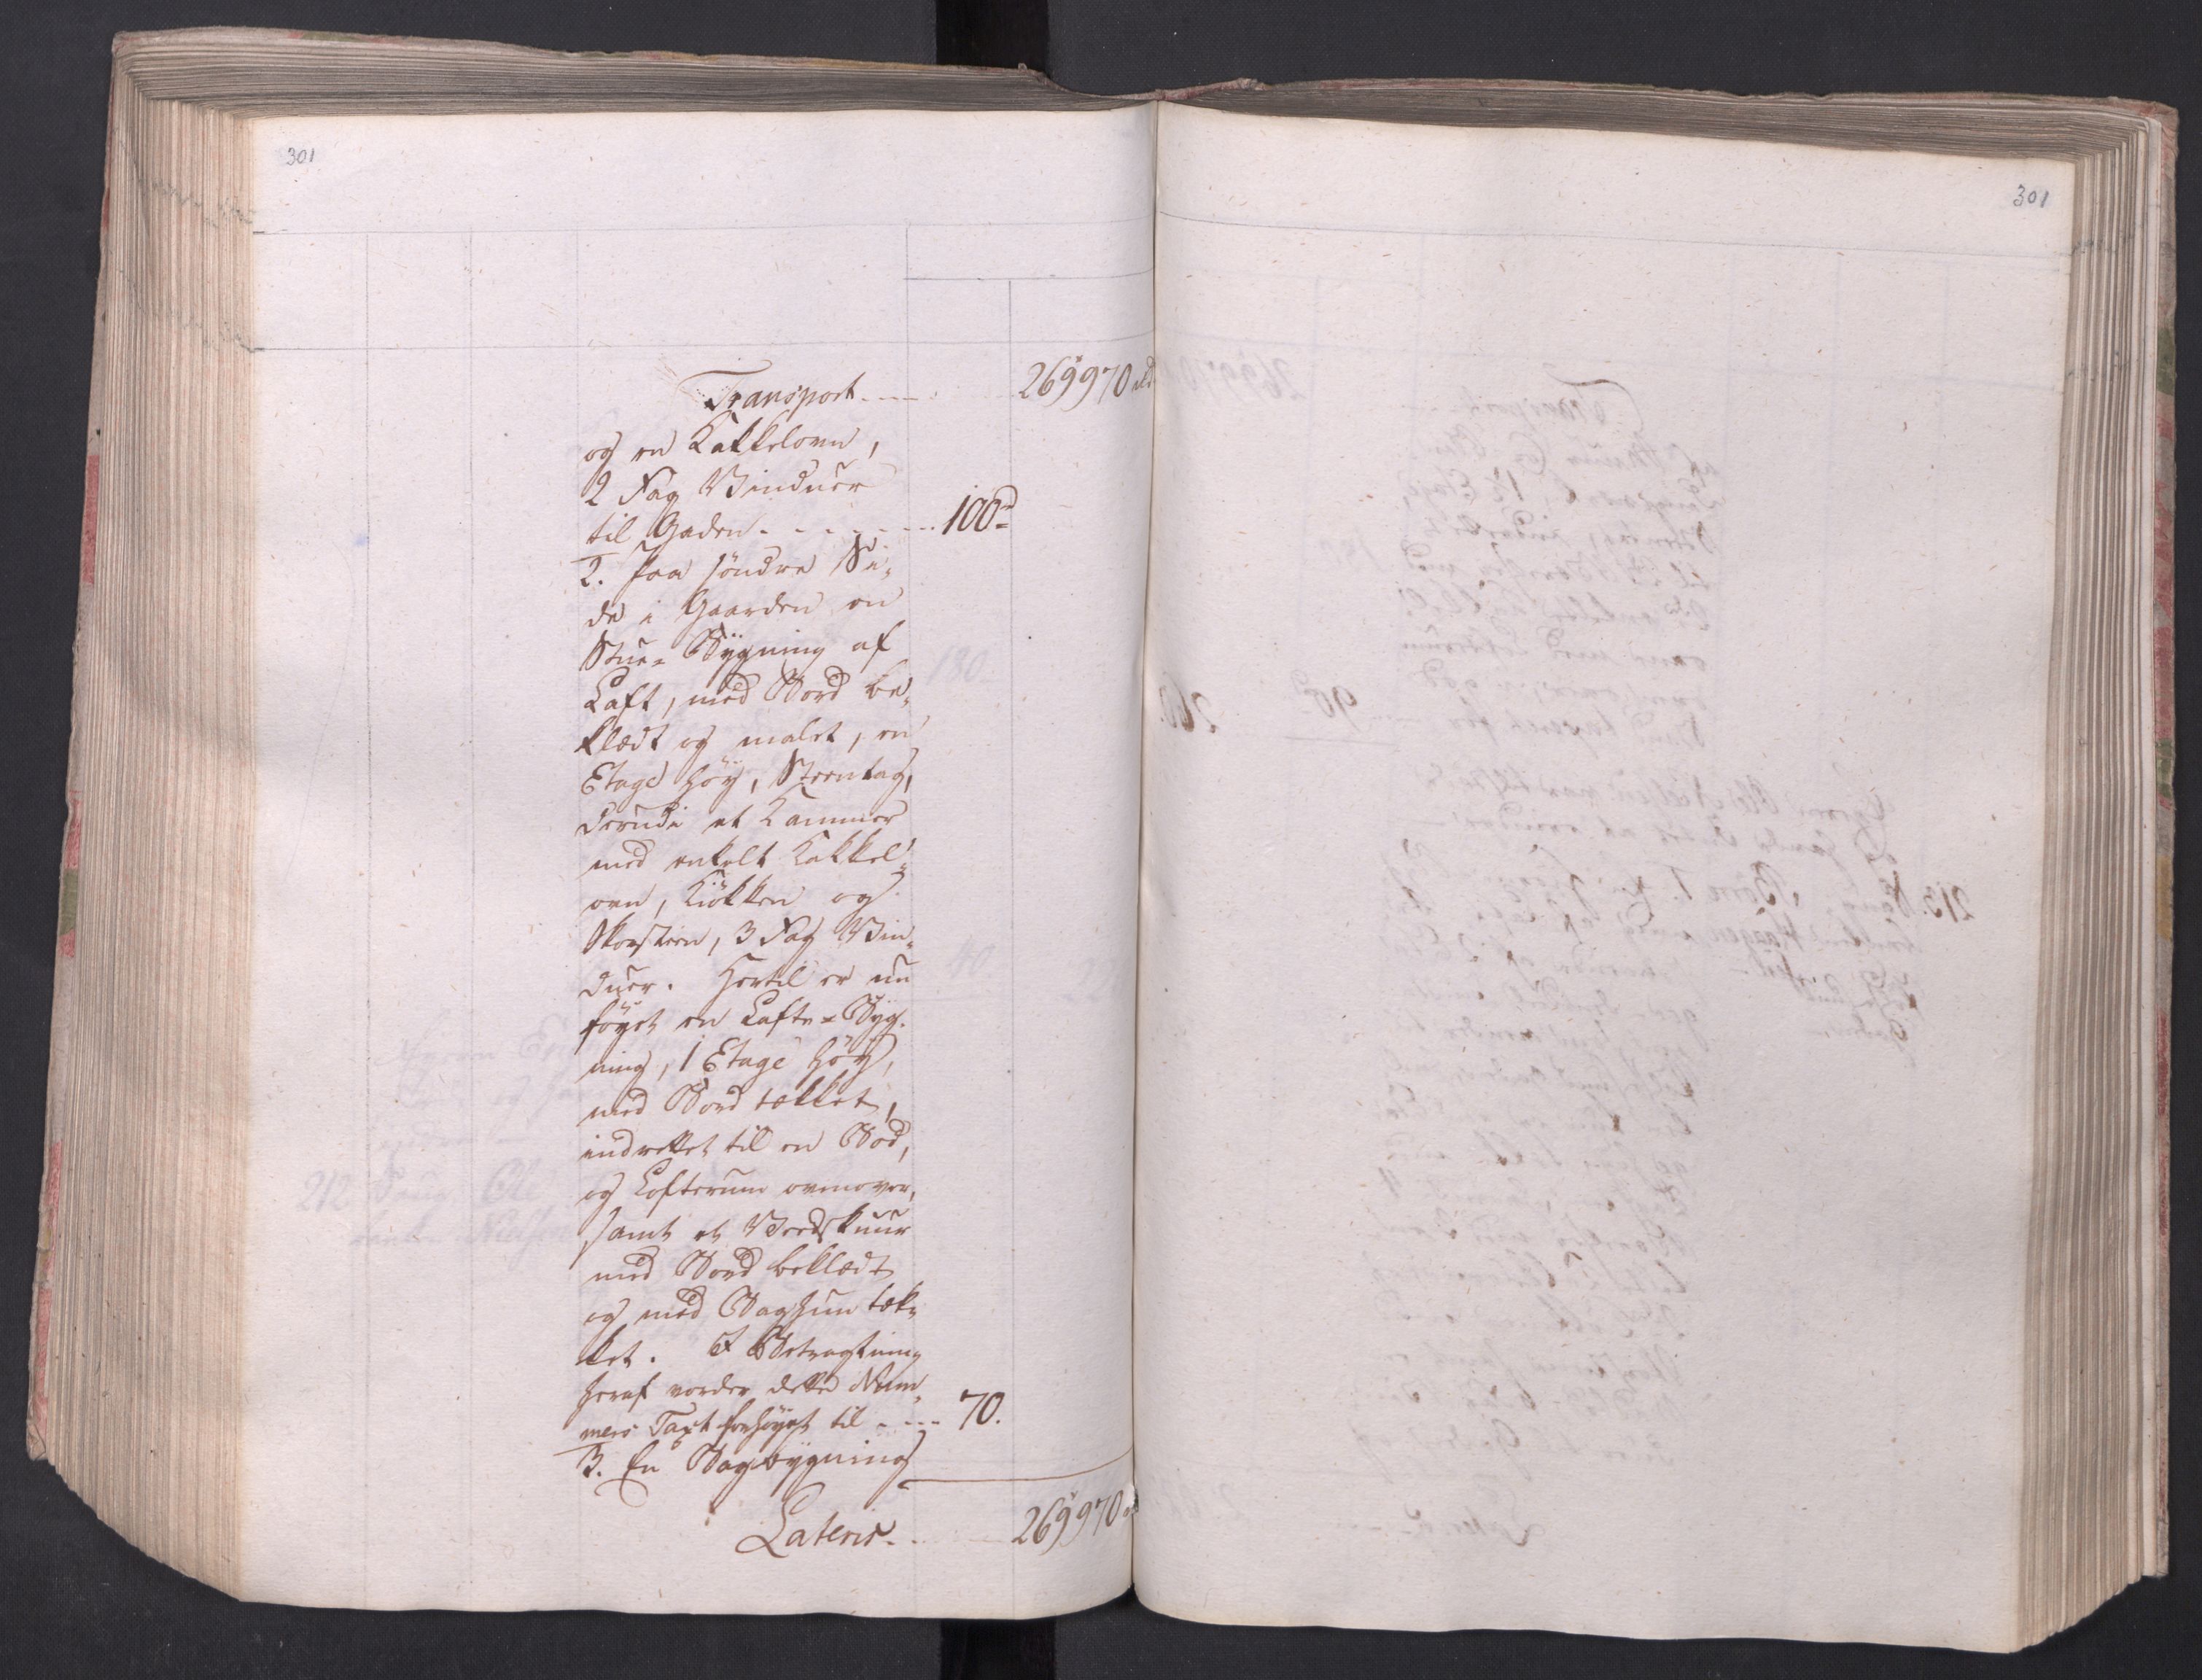 301
301
Transport - - - 269970 rd
og en Kakkelovn,
2 Fag Vinduer
til Gaden - - - - - - 100 rd
2. Paa søndre Si-
de i Gaarden en
Stue-Bÿgning af
Laft, med Bord be-
klædt og malet, en
Etage høÿ, Steentag,
derudi et Kammer
med enkelt Kakkel-
ovn, Kiøkken og
Skorsteen, 3 Fag Vin-
duer. Hertil er nu
føÿet en Lafte-Bÿg-
ning, 1 Etage høÿ,
med Bord tækket,
indrettet til en Bod,
og Lofterum ovenover,
samt et Vedskuur
med Bord beklædt
og med Baghun tæk-
ket. I Betragtning
heraf vorder dette Num-
mers Taxt forhøÿet til - - - 70.
3. En Bagbÿgning
Lateris - - 269970